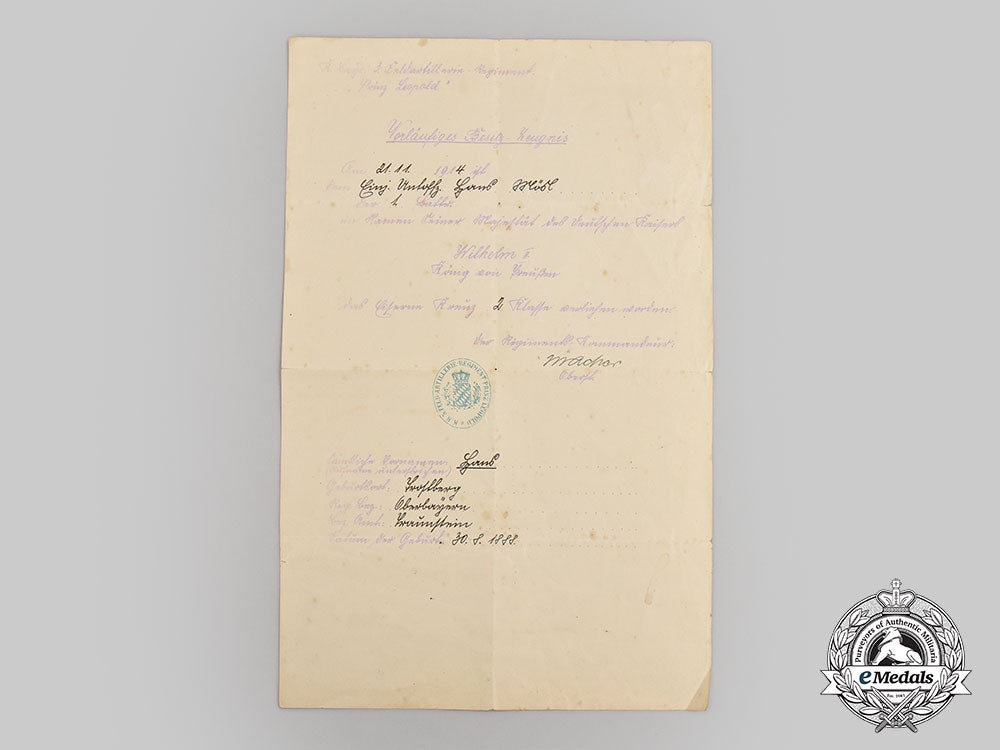 K. Bayr. 3. Feldartillerie-Regiment.
"Prinz Leopold"
Vorläufiges Besitz-Zeugnis
Am 21.11. 1914 ist
dem Einj. Untoffz. Hans Mösl
der 1. Battr.
im Namen Seiner Majestät des Deutschen Kaisers
Wilhelm II
König von Preußen
das Eiserne Kreuz 2 Klasse verliehen worden.
Der Regiments-Kommandeur:
Oberst.
FELD-ARTILLERIE-REGIMENT PRINZ LEOPOLD
Sämtliche Vornamen: Hans
(Rufname unterstreichen)
Geburtsort: Trostberg
Reg. Bez.: Oberbayern
Bez. Amt: Traunstein
Datum der Geburt: 30.8.1888.
Purveyors of Authentic Militaria
eMedals